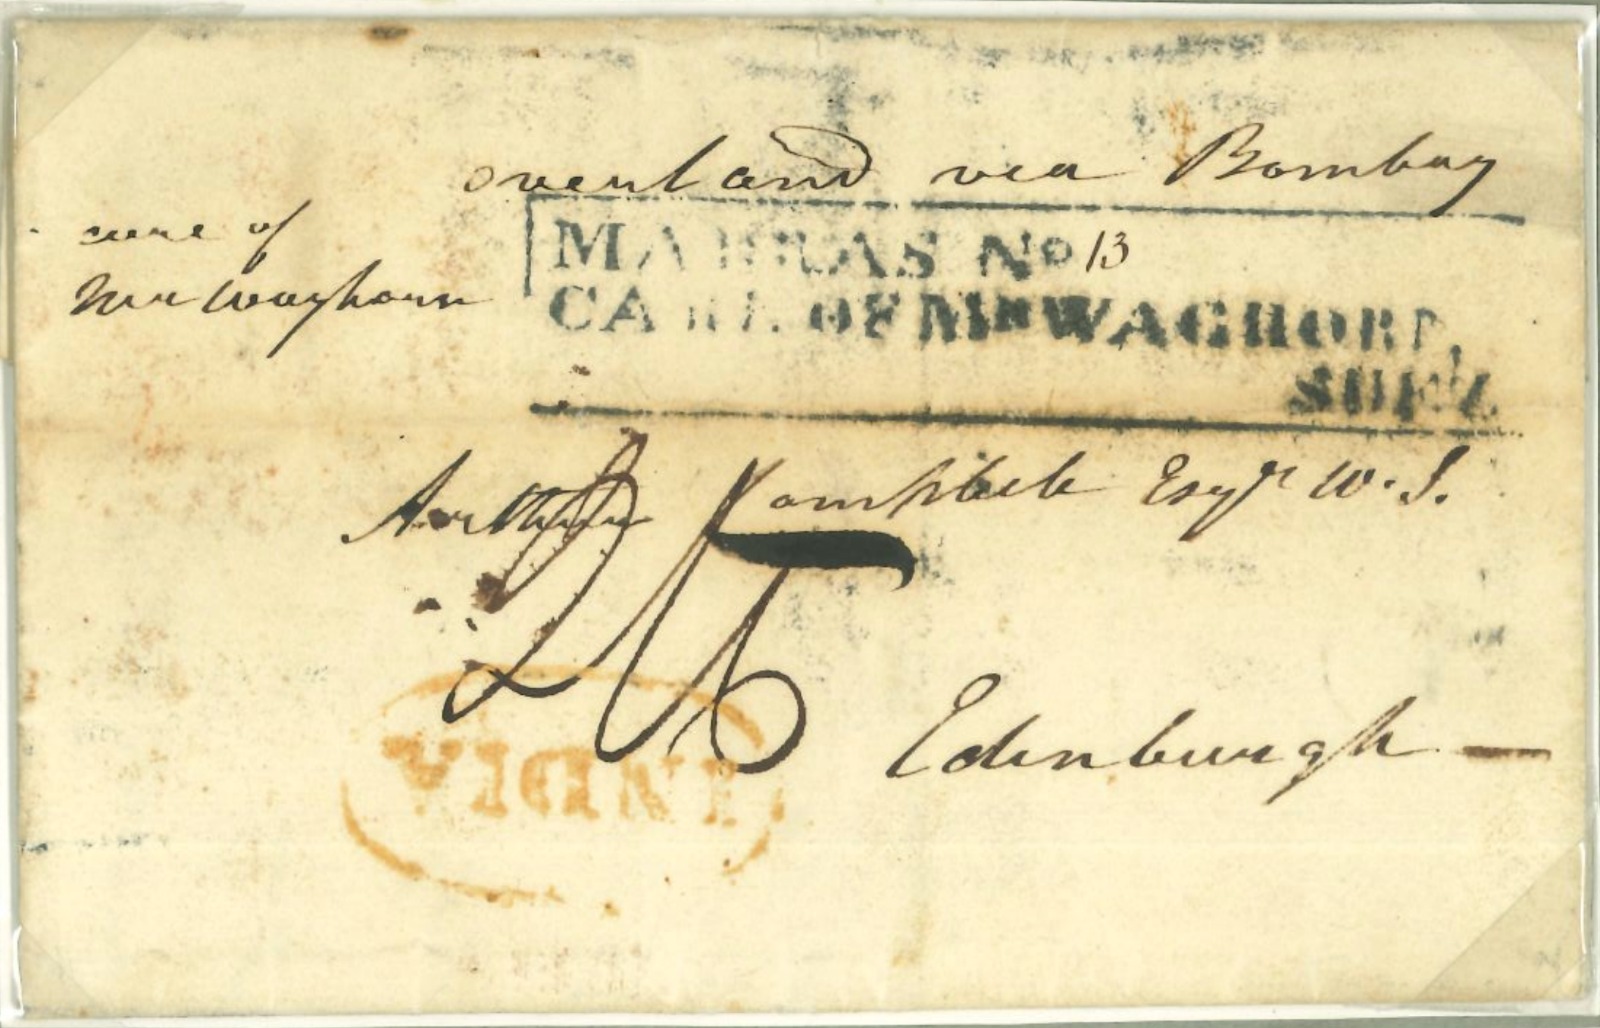 overland via Bombay
care of
Mr Waghorn
MADRAS No 13
CARE OF Mr WAGHORN,
SUEZ
Arthur Campbell Esqr W.S.
Edinburgh
INDIA